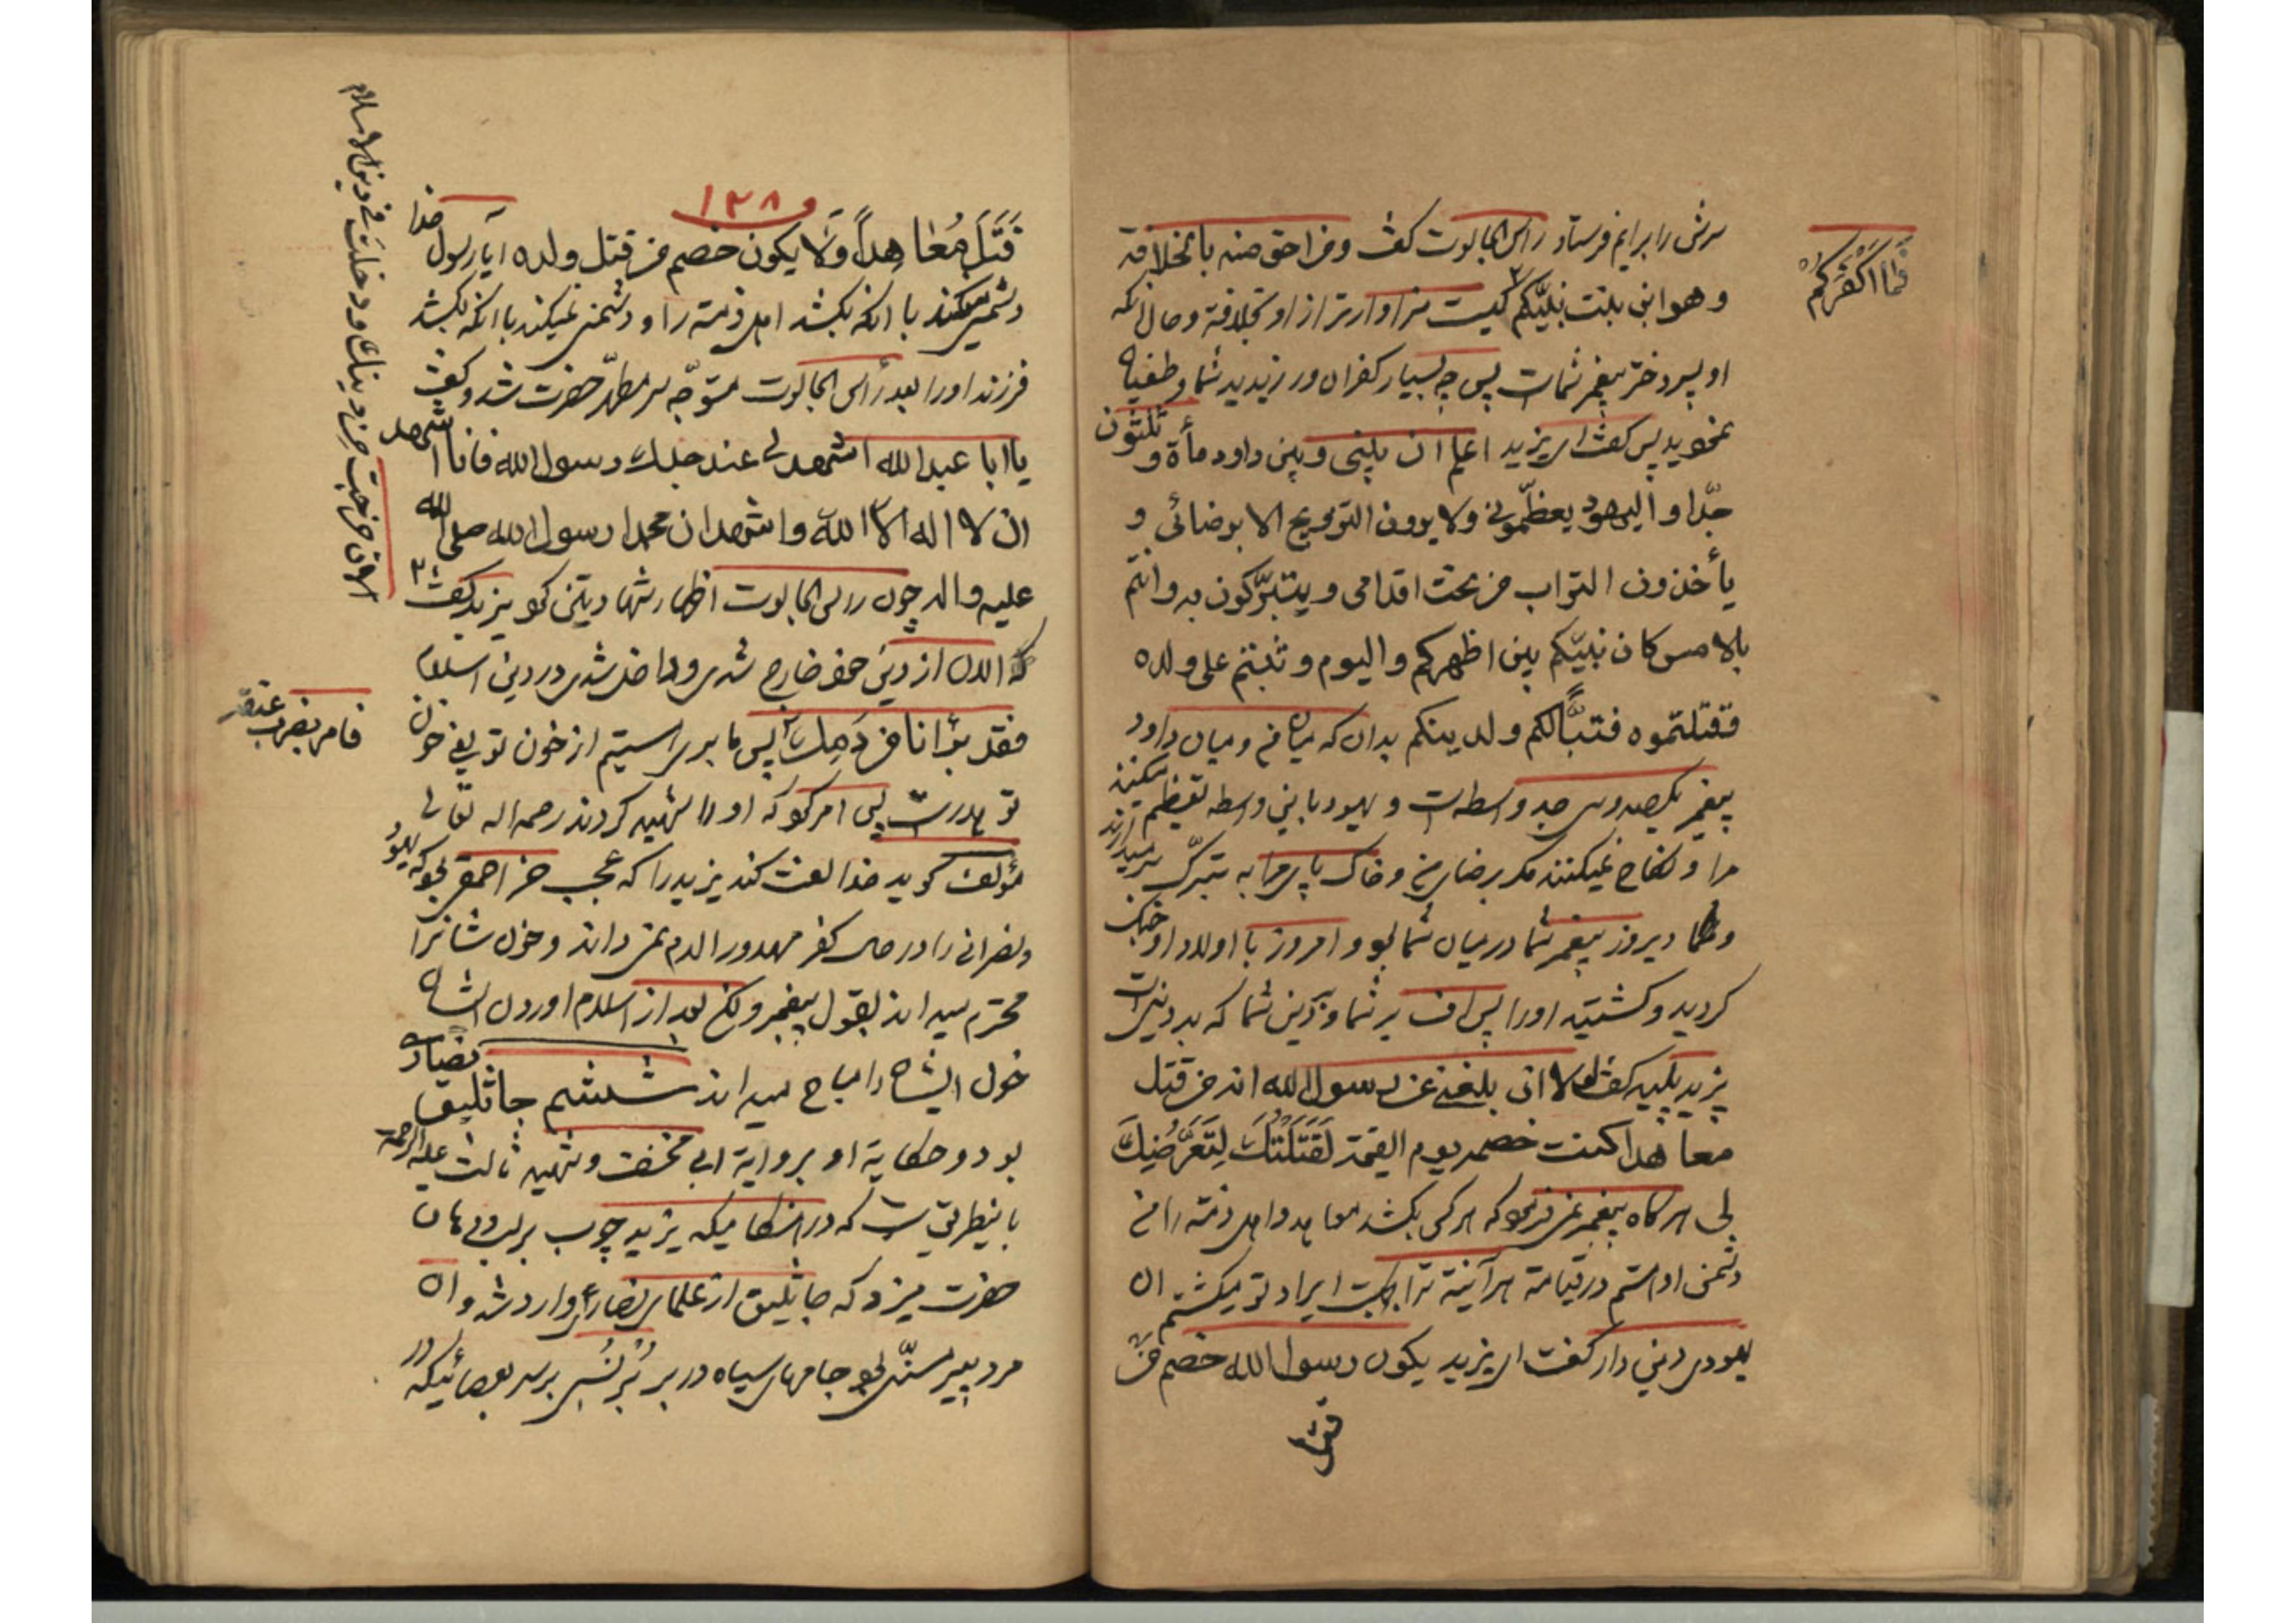 سرش را برایم فرستاد راس الجالوت گفت و من احق منه بالخلافة
و هو ابن بنت نبیّکم کیست سزاوارتر از او بخلافة و حال آنکه
فما اکفرکم
او پسر دختر پیغمبر شماست پس چه بسیار کفران ورزیدید شما و طغیان
نمودید پس گفت ای یزید اعلم ان بینی و بین داود مأة و ثلثون
جدّا و الیهود یعظّمونی و لا یرون التزویج الا برضائی و
یأخذون التراب من تحت اقدامی و یتبرّکون به و انتم
بالامس کان نبیّکم بین اظهرکم و الیوم وثبتم علی ولده
فقتلتموه فتبّاً لکم و لدینکم بدان که میان من و میان داود
پیغمبر یکصد و سی جد واسطه است و یهود باین واسطه تعظیم میکنند
مرا و نکاح نمیکنند مگر برضای من و خاک پای مرا به تبرّک برمیدارند
و شما دیروز پیغمبر شما در میان شما بود و امروز با اولاد او جنک
کردید و کشتید او را پس اف بر شما و دین شما که بد دینی است
یزید پلید گفت لولا انی بلغنی عن رسول الله انه من قتل
معاهدا کنت خصمه یوم القیمة لقتلتک لتعرّضیک
بلی هرگاه پیغمبر نمی فرمود که هر کس بکشد معاهد و اهل ذمّه را من
دشمن او هستم در قیامة هر آینه ترا بجهت ایراد تو میکشتم ان
یهودی دینی دار گفت ای یزید یکون رسول الله خصم من
قتل
۱۳۸
قَتَلَ مُعاهِداً وَلا یکون خصم من قتل ولده ایا رسول خدا
دشمنی میکند با انکه بکشد اهل ذمّه را و دشمنی نمیکند با انکه بکشد
فرزند او را بعد رأس الجالوت متوجّه سر مطهّر حضرت شد و گفت
یا ابا عبدالله اشهد لی عند جدک رسول الله فانا اشهد
ان لا اله الا الله و اشهد ان محمدا رسول الله صلی الله
علیه و اله چون راس الجالوت اظهار شهادتین نمود یزید گفت
الان خرجت من دینک و دخلت فی دین الاسلام
که الان از دین خود خارج شدی و داخل شدی در دین اسلام
فقد برأنا من دمک پس ما بری هستیم از خون تو یعنی خون
فامر بضرب عنقه
تو هدر است پس امر نمود که او را شهید کردند رحمه اله تعالی
مؤلف گوید خدا لعنت کند یزید را که عجب خر احمقی بود که یهود
و نصرانی را در حال کفر مهدور الدم نمی داند و خون شانرا
محترم میداند بقول پیغمبر و لکن بعد از اسلام اوردن ایشان
خون ایشان را مباح میداند ششم جاثلیق نصاری
بود و حکایة او بروایة ابی مخنف و شهید ثالث علیه الرحمة
باینطریق است که در هنکامیکه یزید چوب بر لب و دهان
حضرت میزد که جاثلیق از علمای نصاری وارد شد و ان
مرد پیر مسنّی بود جامهای سیاه در بر بُرنُسی بر سر بعصائیکه در